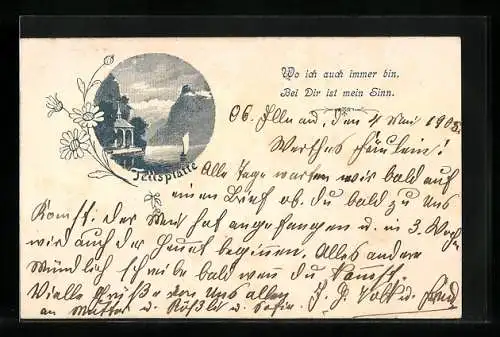 Wo ich auch immer bin,
Bei Dir ist mein Sinn.
Tellsplatte
den 4 Mai 1903.
Werthes Fräulein!
Alle Tage warten wir bald auf
einen Brief ob du bald zu uns
Komst. der Mai hat angefangen u. in 3.
wird auch der Heuet beginnen. Alles andere
Mündlich schreibe bald wen du komst.
Vielle Grüße von Uns allen
an Mutter u. u.